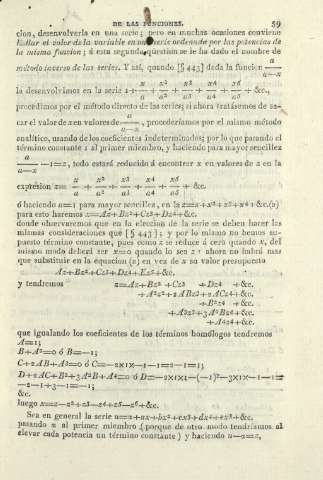 DE LAS FUNCIONES. 59
cion, desenvolverla en una serie; pero en muchas ocasiones conviene
hallar el valor de la variable en una serie ordenada por las potencias de
la misma funcion; á esta segunda question se le ha dado el nombre de
método inverso de las series. Y así, quando [§ 443] dada la funcion a/(a−x)
la desenvolvimos en la serie 1+x/a+x²/a²+x3/a3+x4/a4+x5/a5+&c.,
procedimos por el método directo de las series; si ahora tratásemos de sa-
car el valor de x en valores de a/(a−x), procederíamos por el mismo método
analítico, usando de los coeficientes indeterminados; por lo que pasando el
término constante 1 al primer miembro, y haciendo para mayor sencillez
a/(a−x)−1=z, todo estará reducido á encontrar x en valores de z en la
expresion z=x/a+x²/a²+x3/a3+x4/a4+x5/a5+&c.
ó haciendo a=1 para mayor sencillez, en la z=x+x²+x3+x4+&c.(n)
para esto haremos x=Az+Bz²+Cz3+Dz4+&c.
donde observaremos que en la eleccion de la serie se deben hacer las
mismas consideraciones que [§ 443]; y por lo mismo no hemos su-
puesto término constante, pues como z se reduce á cero quando x, del
mismo modo deberá ser x=0 quando lo sea z: ahora no habrá mas
que substituir en la equacion (n) en vez de x su valor presupuesto
Az+Bz²+Cz3+Dz4+Ez5+&c.
y tendremos z=Az+Bz²+Cz3 +Dz4 +&c.
+A²z²+2ABz3+2ACz4+&c.
+B²z4 +&c.
+A3z3+3A²Bz4+&c.
+A4z4+&c.
que igualando los coeficientes de los términos homólogos tendremos
A=1;
B+A²=0 ó B=−1;
C+2AB+A3=0 ó C=−2×1×−1−1=2−1=1;
D+2AC+B²+3A²B+A4=0 ó D=−2×1×1−(−1)²−3×1×−1−1=
−2−1+3−1=−1;
&c.
luego x=z−z²+z3−z4+z5−z6+&c.
Sea en general la serie u=α+ax+bx²+cx3+dx4+ex5+&c.
pasando α al primer miembro (porque de otro modo tendríamos al
elevar cada potencia un término constante) y haciendo u−α=z,